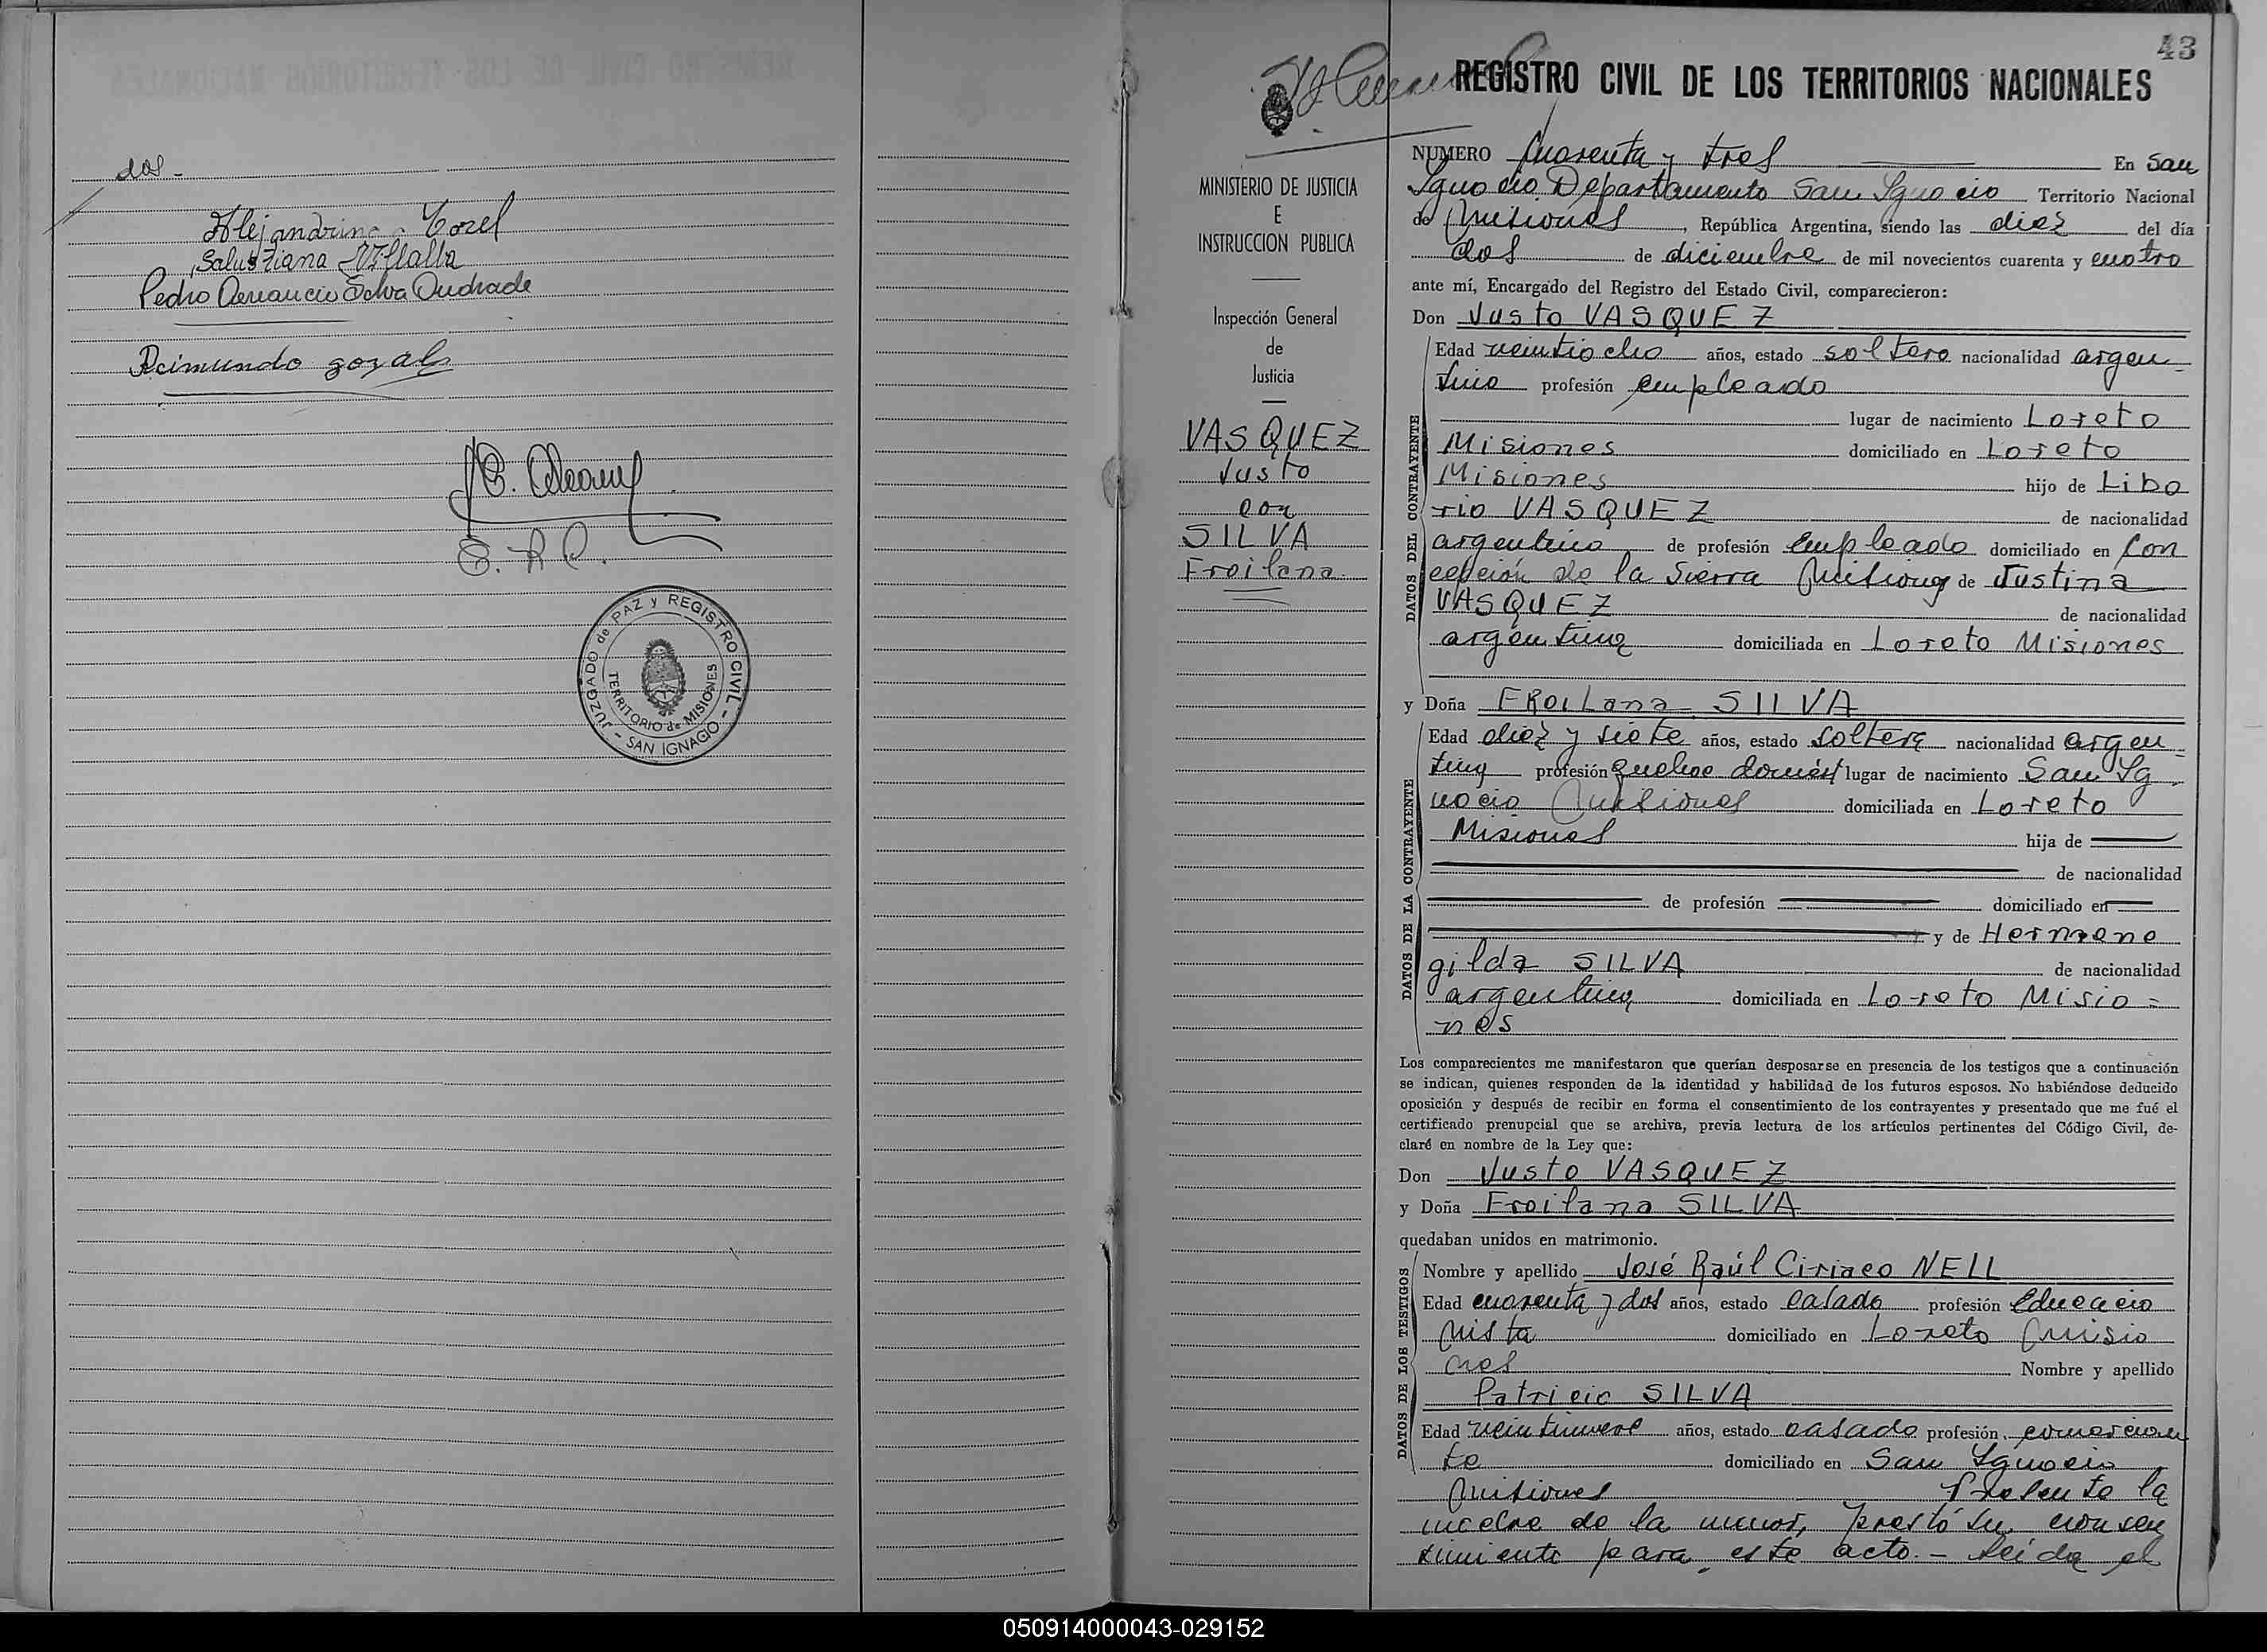 dos-
Alejandrina
Salustiana Villalba
Pedro Silva Andrade
Reimundo
JUZGADO de PAZ y REGISTRO CIVIL - SAN IGNACIO -
TERRITORIO de MISIONES
43
REGISTRO CIVIL DE LOS TERRITORIOS NACIONALES
MINISTERIO DE JUSTICIA
E
INSTRUCCION PUBLICA
Inspección General
de
Justicia
VASQUEZ
Justo
con
SILVA
Froilana
NUMERO Cuarenta y tres En San
Ignacio Departamento San Ignacio Territorio Nacional
de Misiones, República Argentina, siendo las diez del día
dos de diciembre de mil novecientos cuarenta y cuatro
ante mí, Encargado del Registro del Estado Civil, comparecieron:
Don Justo VASQUEZ
DATOS DEL CONTRAYENTE
Edad veintiocho años, estado soltero nacionalidad argen-
tino profesión empleado
lugar de nacimiento Loreto
Misiones domiciliado en Loreto
Misiones hijo de Libo
rio VASQUEZ de nacionalidad
argentino de profesión empleado domiciliado en Con
cepción de la Sierra Misiones de Justina
VASQUEZ de nacionalidad
argentina domiciliada en Loreto Misiones
y Doña FROILana SILVA
DATOS DE LA CONTRAYENTE
Edad diez y siete años, estado soltera nacionalidad argen-
tina profesión quehac domést lugar de nacimiento San Ig
nacio Misiones domiciliada en Loreto
Misiones hija de
de nacionalidad
de profesión domiciliado en
y de Hermene
gilda SILVA de nacionalidad
argentina domiciliada en Loreto Misio=
nes
Los comparecientes me manifestaron que querían desposarse en presencia de los testigos que a continuación
se indican, quienes responden de la identidad y habilidad de los futuros esposos. No habiéndose deducido
oposición y después de recibir en forma el consentimiento de los contrayentes y presentado que me fué el
certificado prenupcial que se archiva, previa lectura de los artículos pertinentes del Código Civil, de-
claré en nombre de la Ley que:
Don Justo VASQUEZ
y Doña Froilana SILVA
quedaban unidos en matrimonio.
DATOS DE LOS TESTIGOS
Nombre y apellido José Raúl Ciriaco NELL
Edad cuarenta y dos años, estado casado profesión educacio
nista domiciliado en Loreto Misio
nes Nombre y apellido
Patricio SILVA
Edad veintinueve años, estado casado profesión comercian
te domiciliado en San Ignacio
Misiones Presente la
madre de la menor, prestó su consen
timiento para este acto.- Leida el
050914000043-029152